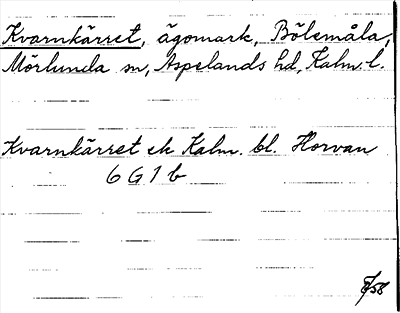 Kvarnkärret, ägomark, Bölemåla,
Mörlunda sn, Aspelands hd, Kalm. l.
Kvarnkärret ek Kalm. bl. Horvan
6 G 1 b